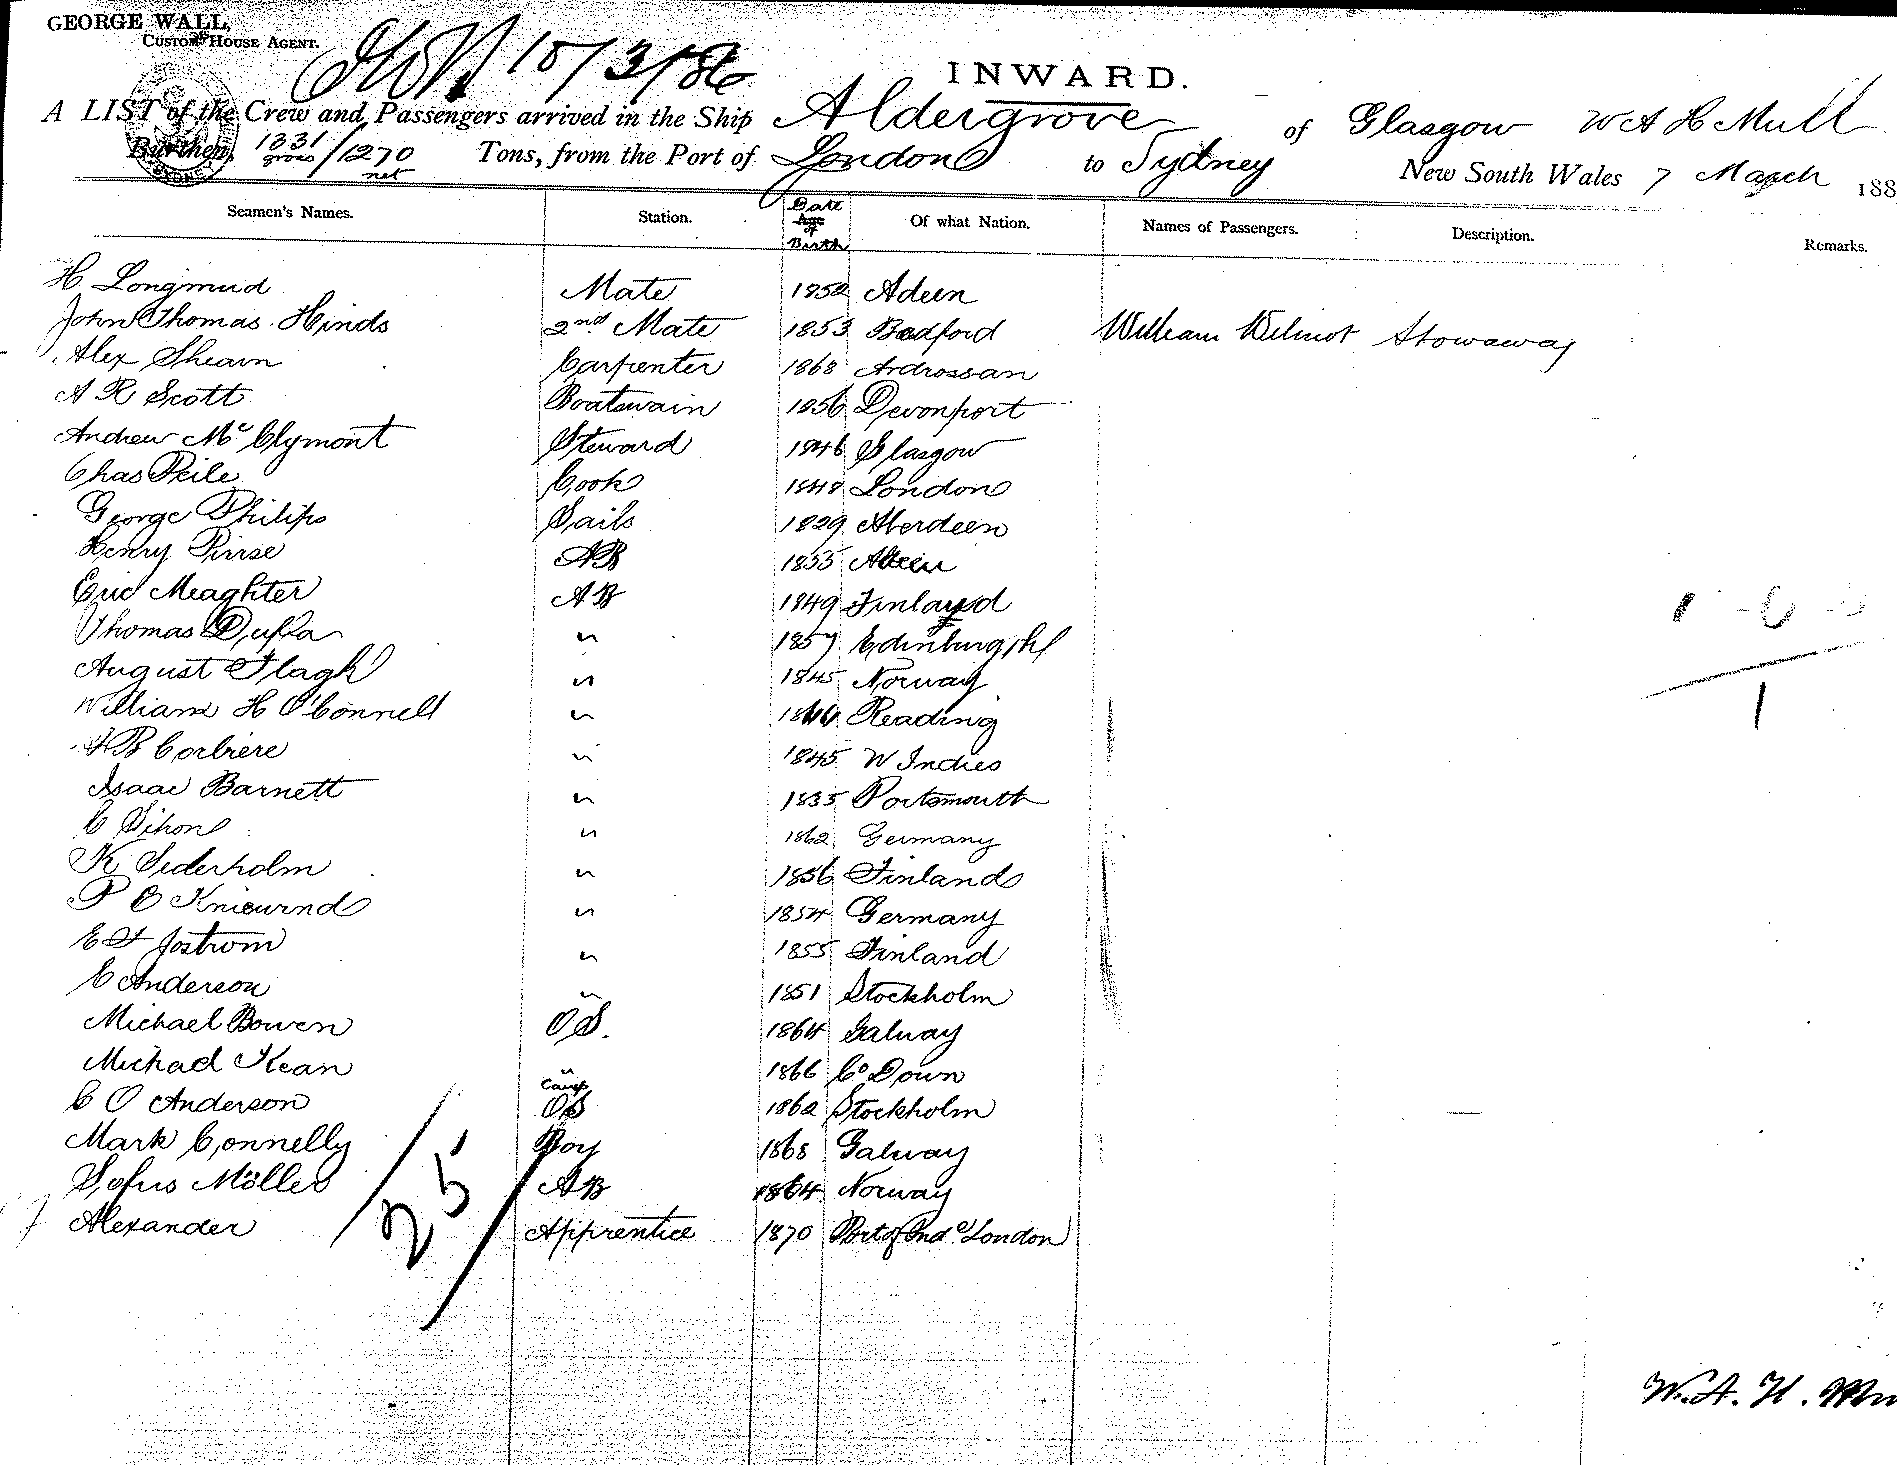 GEORGE WALL,
CUSTOM HOUSE AGENT.
15/3/86
INWARD.
A LIST of the Crew and Passengers arrived in the Ship Aldergrove of Glasgow W A H Mull
Burthen, 1331 gross / 1270 net Tons, from the Port of London to Sydney New South Wales 7 March 188
Seamen's Names. Station. Date Age of Birth Of what Nation. Names of Passengers. Description. Remarks.
H Longmud Mate 1852 Adeen
John Thomas Hinds 2nd Mate 1853 Bedford William Wilmot Stowaway
Alex Shearn Carpenter 1868 Ardrossan
A R Scott Boatswain 1856 Devonport
Andrew Mc Clymont Steward 1846 Glasgow
Chas Peile Cook 1848 London
George Philips Sails 1829 Aberdeen
Henry Pirrse AB 1855
Eric Meaghter AB 1849 Finland
Thomas " 1857 Edinburgh
August Flagh " 1845 Norway
William H O'Connell " Reading
Corbiere " 1845 W Indies
Isaac Barnett " 1835 Portsmouth
C Sihon " 1862 Germany
K Sederholm " 1856 Finland
P C " 1854 Germany
E F Jostrom " 1855 Finland
C Anderson " 1851 Stockholm
Michael Bowen O S. 1864 Galway
Michael Kean " 1866 Co Down
C O Anderson OS 1862 Stockholm
Mark Connelly Boy 1868 Galway
Sofus Möller AB 1864 Norway
Alexander Apprentice 1870 London
25
1
W. A. H. Mu